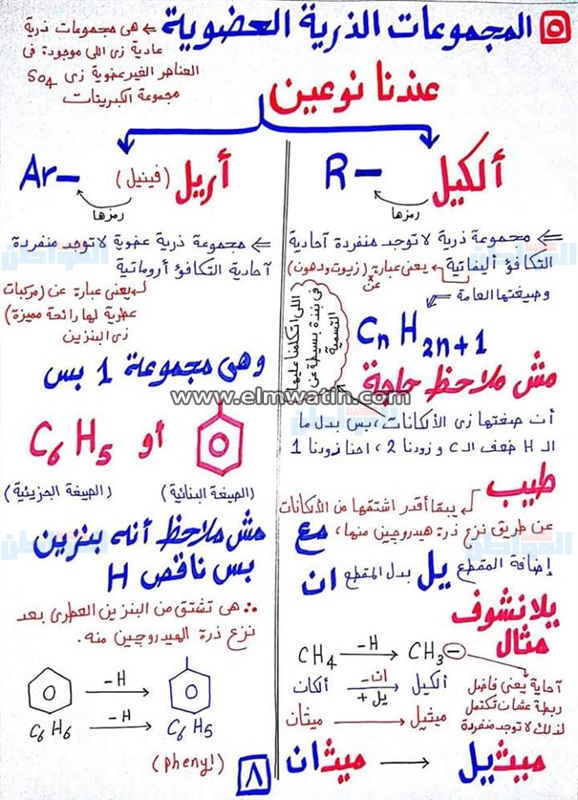 ٥ المجموعات الذرية العضوية
⇐ هى مجموعات ذرية
عادية زى اللى موجودة فى
العناصر الغير عضوية زى SO4
مجموعة الكبريتات
عندنا نوعين
ألكيل R–
رمزها
⇐ مجموعة ذرية لا توجد منفردة أحادية
التكافؤ أليفاتية يعنى عبارة عن (زيوت ودهون)
وصيغتها العامة
CnH2n+1
اللى اتكلمنا عليها
فى نبذة بسيطة عن
التسمية
مش ملاحظ حاجة
أن صيغتها زى الألكانات، بس بدل ما
الـ H ضعف الـ C و زودنا 2، احنا زودنا 1
طيب
يبقا أقدر اشتقها من الألكانات
عن طريق نزع ذرة هيدروجين منها، مع
إضافة المقطع يل بدل المقطع ان
يلا نشوف
مثال
CH4 –H CH3–
ألكان –ان +يل ألكيل
ميثان ميثيل
أحادية يعنى فاضل
رابطة عشان تكتمل
لذلك لا توجد منفردة
ميثان ميثيل
أريل (فينيل) Ar–
رمزها
⇐ مجموعة ذرية عضوية لا توجد منفردة
أحادية التكافؤ أروماتية
يعنى عبارة عن (مركبات
عطرية لها رائحة مميزة)
زى البنزين
وهى مجموعة 1 بس
أو C6H5
(الصيغة البنائية) (الصيغة الجزيئية)
مش ملاحظ أنه بنزين
بس ناقص H
∴ هى تشتق من البنزين العطرى بعد
نزع ذرة الهيدروجين منه.
–H
C6H6 –H C6H5
(phenyl)
٨
www.elmwatin.com
المواطن